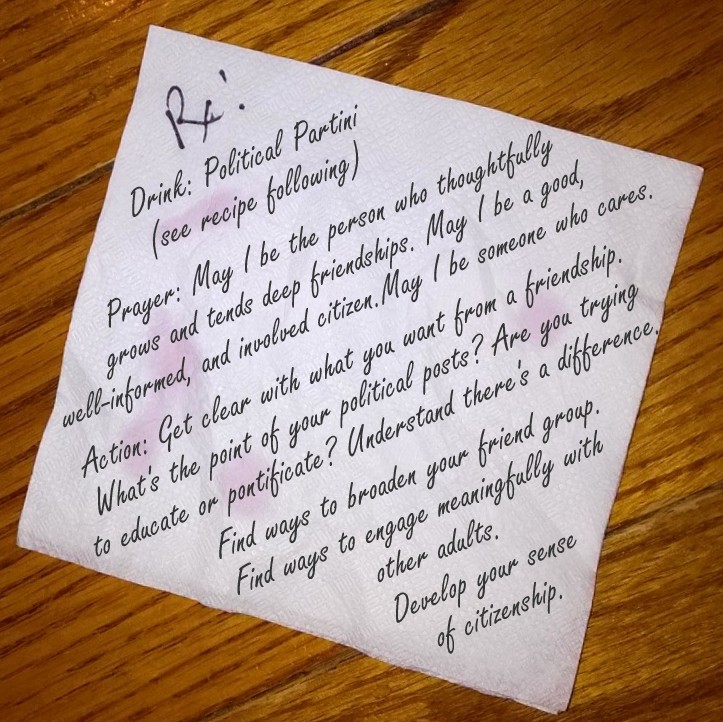 Rx:
Drink: Political Partini
(see recipe following)
Prayer: May I be the person who thoughtfully
grows and tends deep friendships. May I be a good,
well-informed, and involved citizen.May I be someone who cares.
Action: Get clear with what you want from a friendship.
What's the point of your political posts? Are you trying
to educate or pontificate? Understand there's a difference.
Find ways to broaden your friend group.
Find ways to engage meaningfully with
other adults.
Develop your sense
of citizenship.